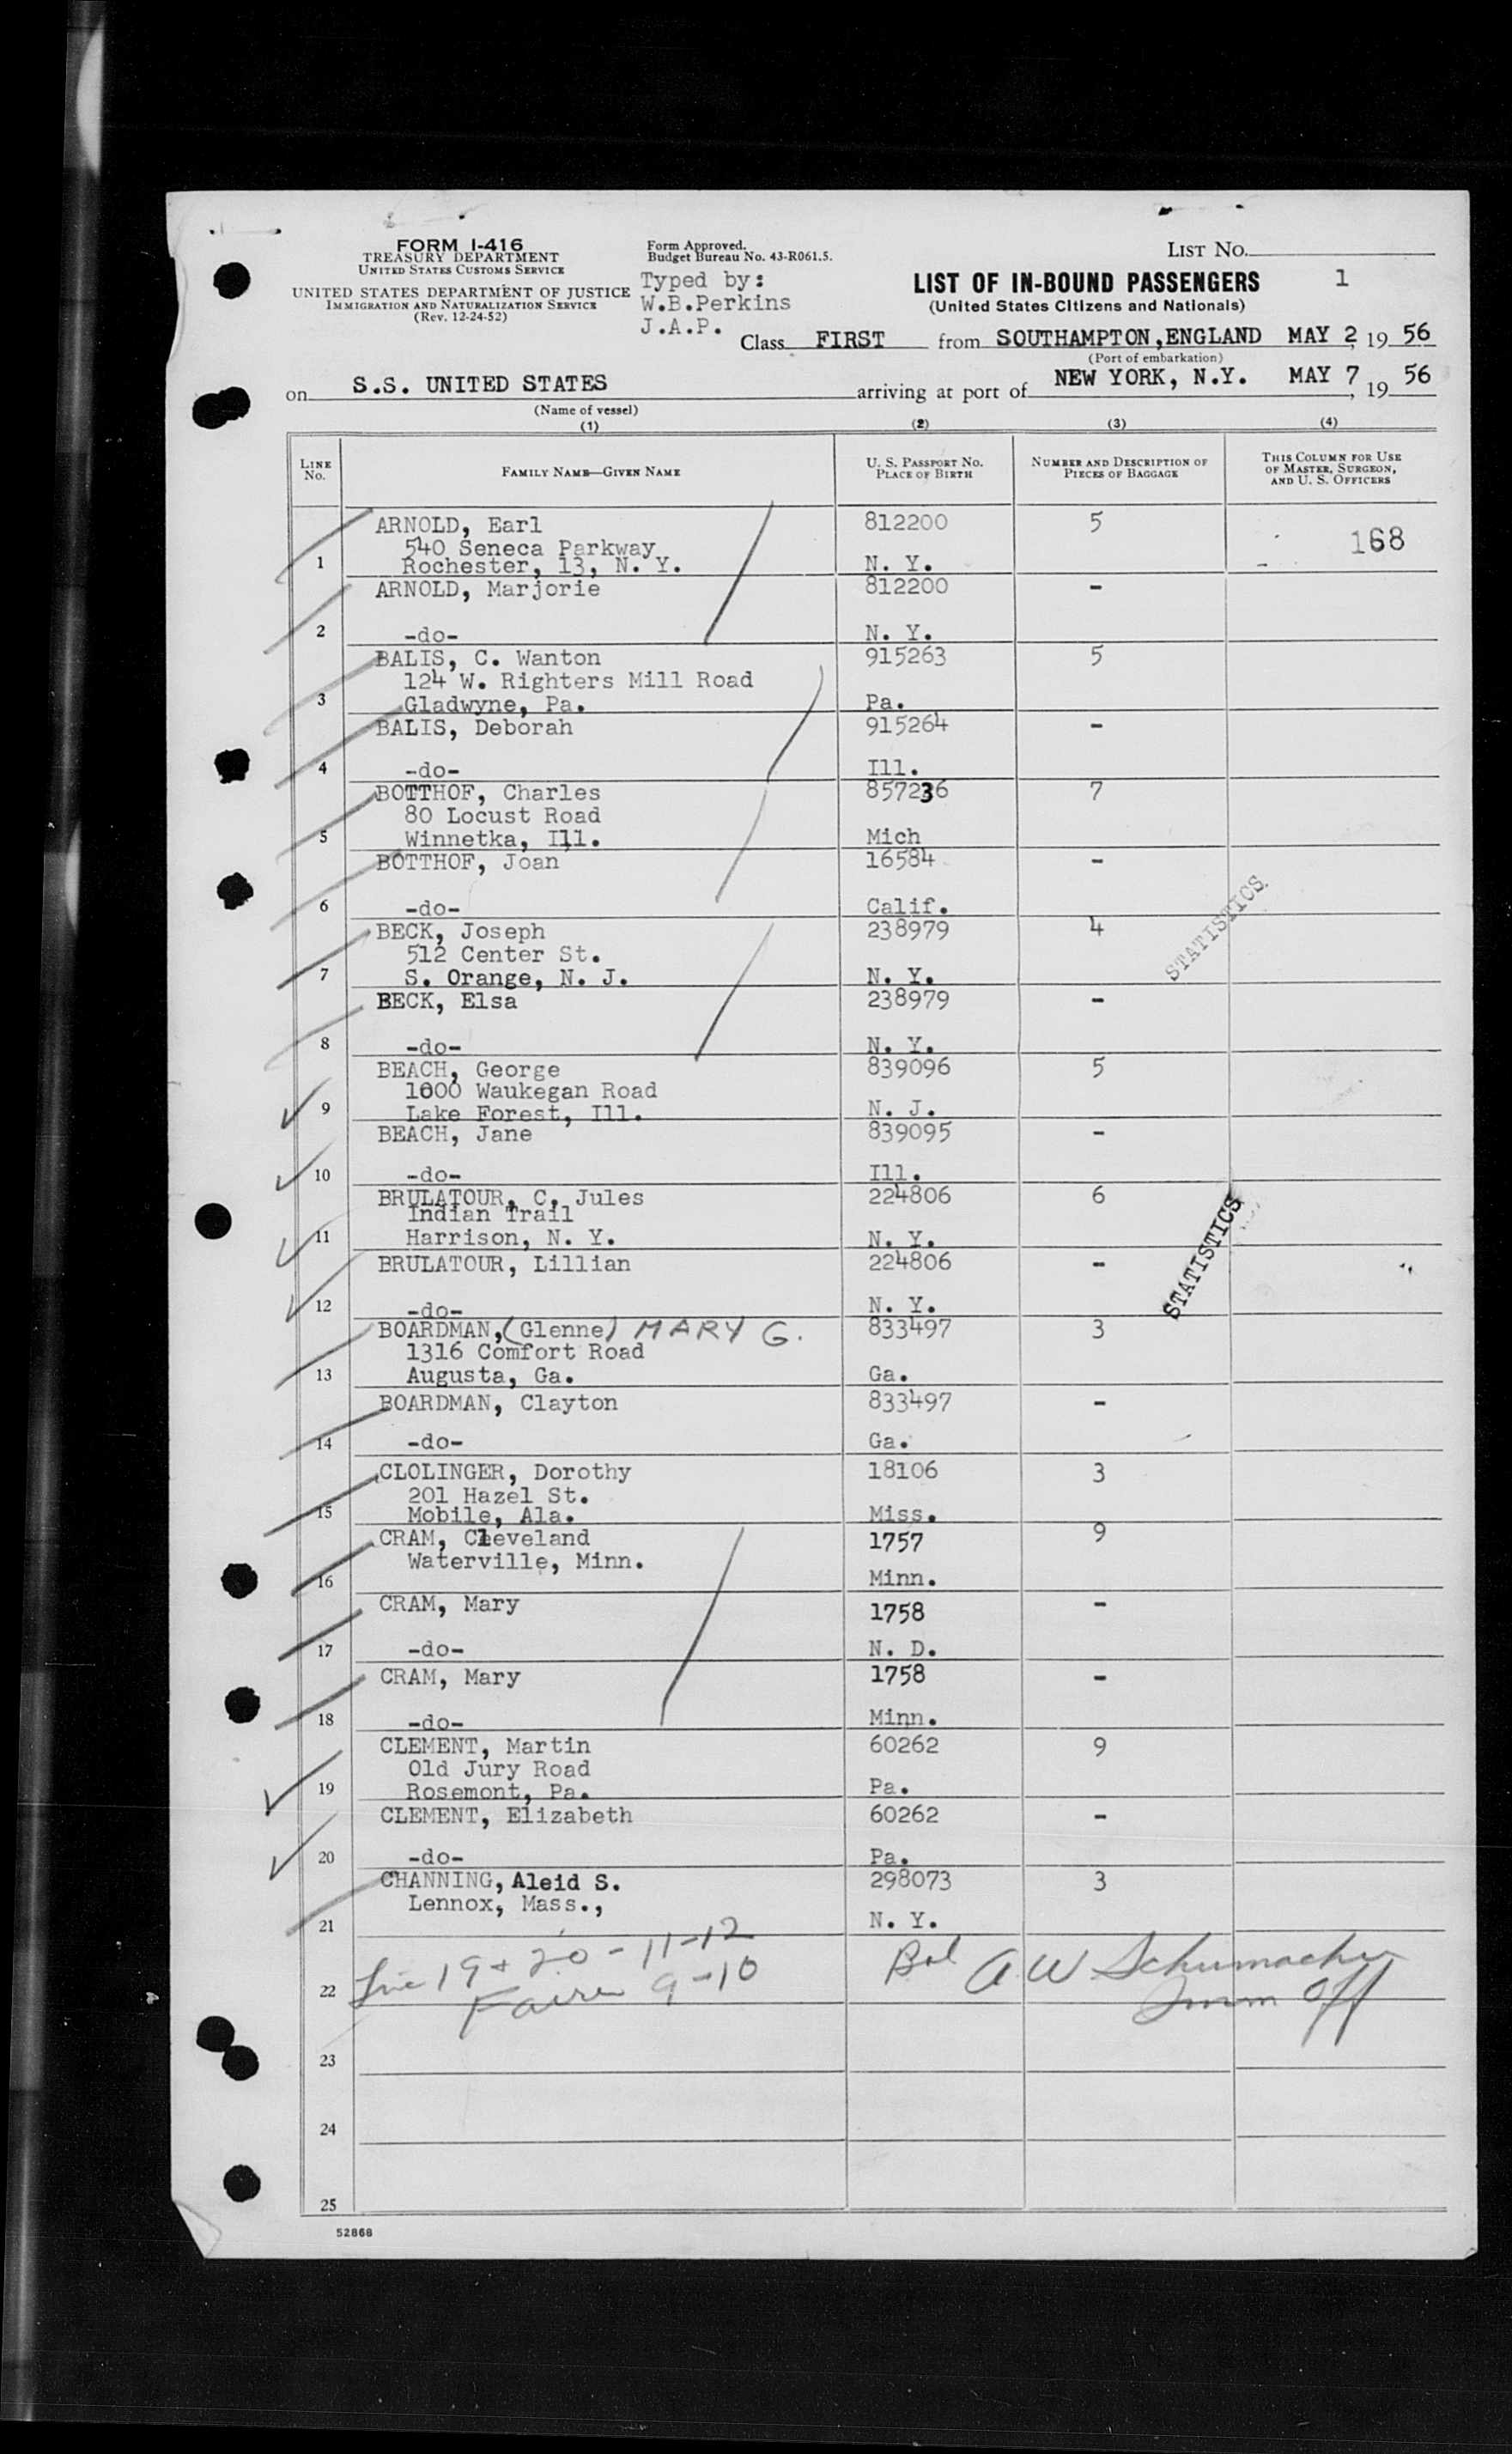 FORM I-416
TREASURY DEPARTMENT
UNITED STATES CUSTOMS SERVICE
UNITED STATES DEPARTMENT OF JUSTICE
IMMIGRATION AND NATURALIZATION SERVICE
(Rev. 12-24-52)
Form Approved.
Budget Bureau No. 43-R061.5.
Typed by:
W.B.Perkins
J.A.P.
LIST No.
LIST OF IN-BOUND PASSENGERS 1
(United States Citizens and Nationals)
Class FIRST from SOUTHAMPTON,ENGLAND MAY 2, 19 56
(Port of embarkation)
on S.S. UNITED STATES arriving at port of NEW YORK, N.Y. MAY 7, 19 56
(Name of vessel)
(1) (2) (3) (4)
LINE No. FAMILY NAME—GIVEN NAME U. S. PASSPORT No. PLACE OF BIRTH NUMBER AND DESCRIPTION OF PIECES OF BAGGAGE THIS COLUMN FOR USE OF MASTER, SURGEON, AND U. S. OFFICERS
ARNOLD, Earl 812200 5
540 Seneca Parkway 168
1 Rochester, 13, N. Y. N. Y. -
ARNOLD, Marjorie 812200 -
2 -do- N. Y.
BALIS, C. Wanton 915263 5
124 W. Righters Mill Road
3 Gladwyne, Pa. Pa.
BALIS, Deborah 915264 -
4 -do- Ill.
BOTTHOF, Charles 857236 7
80 Locust Road
5 Winnetka, Ill. Mich
BOTTHOF, Joan 16584 -
6 -do- Calif.
BECK, Joseph 238979 4
512 Center St.
7 S. Orange, N. J. N. Y.
STATISTICS
BECK, Elsa 238979 -
8 -do- N. Y.
BEACH, George 839096 5
1000 Waukegan Road
9 Lake Forest, Ill. N. J.
BEACH, Jane 839095 -
10 -do- Ill.
BRULATOUR, C. Jules 224806 6
Indian Trail
11 Harrison, N. Y. N. Y.
BRULATOUR, Lillian 224806 -
STATISTICS
12 -do- N. Y.
BOARDMAN, (Glenne) MARY G. 833497 3
1316 Comfort Road
13 Augusta, Ga. Ga.
BOARDMAN, Clayton 833497 -
14 -do- Ga.
CLOLINGER, Dorothy 18106 3
201 Hazel St.
15 Mobile, Ala. Miss.
CRAM, Cleveland 1757 9
Waterville, Minn.
16 Minn.
CRAM, Mary 1758 -
17 -do- N. D.
CRAM, Mary 1758 -
18 -do- Minn.
CLEMENT, Martin 60262 9
Old Jury Road
19 Rosemont, Pa. Pa.
CLEMENT, Elizabeth 60262 -
20 -do- Pa.
CHANNING, Aleid S. 298073 3
Lennox, Mass.,
21 N. Y.
19 + 20 - 11-12 Bal A W Schumacher
22 9-10 Imm Off
23
24
25
52868